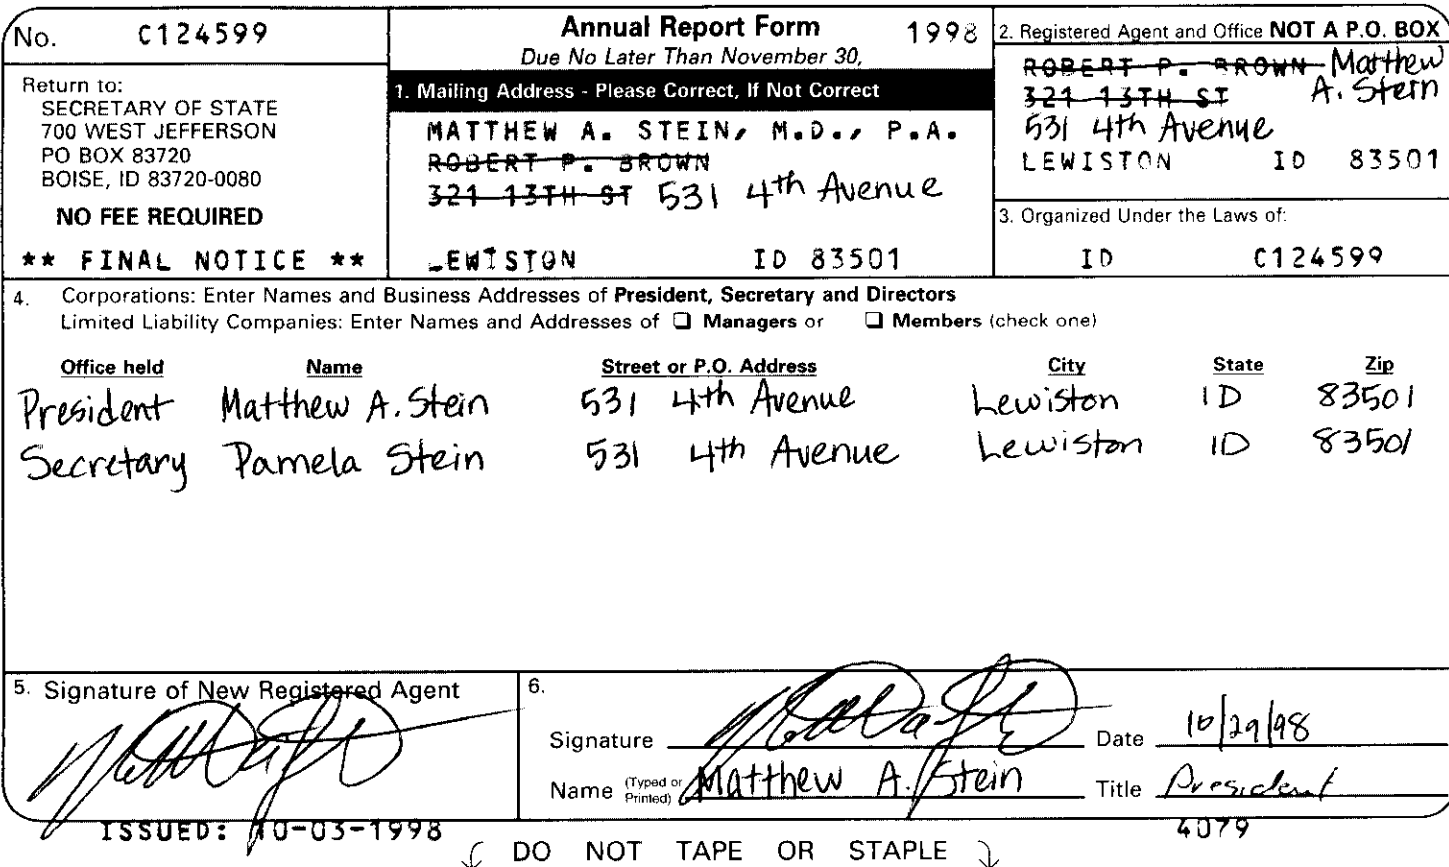 No. C124599
Return to:
SECRETARY OF STATE
700 WEST JEFFERSON
PO BOX 83720
BOISE, ID 83720-0080
NO FEE REQUIRED
** FINAL NOTICE **
Annual Report Form 1998
Due No Later Than November 30,
1. Mailing Address - Please Correct, If Not Correct
MATTHEW A. STEIN, M.D., P.A.
ROBERT P. BROWN
321 13TH ST 531 4th Avenue
LEWISTON ID 83501
2. Registered Agent and Office NOT A P.O. BOX
ROBERT P. BROWN Matthew
321 13TH ST A. Stein
531 4th Avenue
LEWISTON ID 83501
3. Organized Under the Laws of:
ID C124599
4. Corporations: Enter Names and Business Addresses of President, Secretary and Directors
Limited Liability Companies: Enter Names and Addresses of ❏ Managers or ❏ Members (check one)
Office held Name Street or P.O. Address City State Zip
President Matthew A. Stein 531 4th Avenue Lewiston ID 83501
Secretary Pamela Stein 531 4th Avenue Lewiston ID 83501
5. Signature of New Registered Agent
6.
Signature Date 10/29/98
Name (Typed or Printed) Matthew A. Stein Title President
ISSUED: 10-03-1998 4079
DO NOT TAPE OR STAPLE